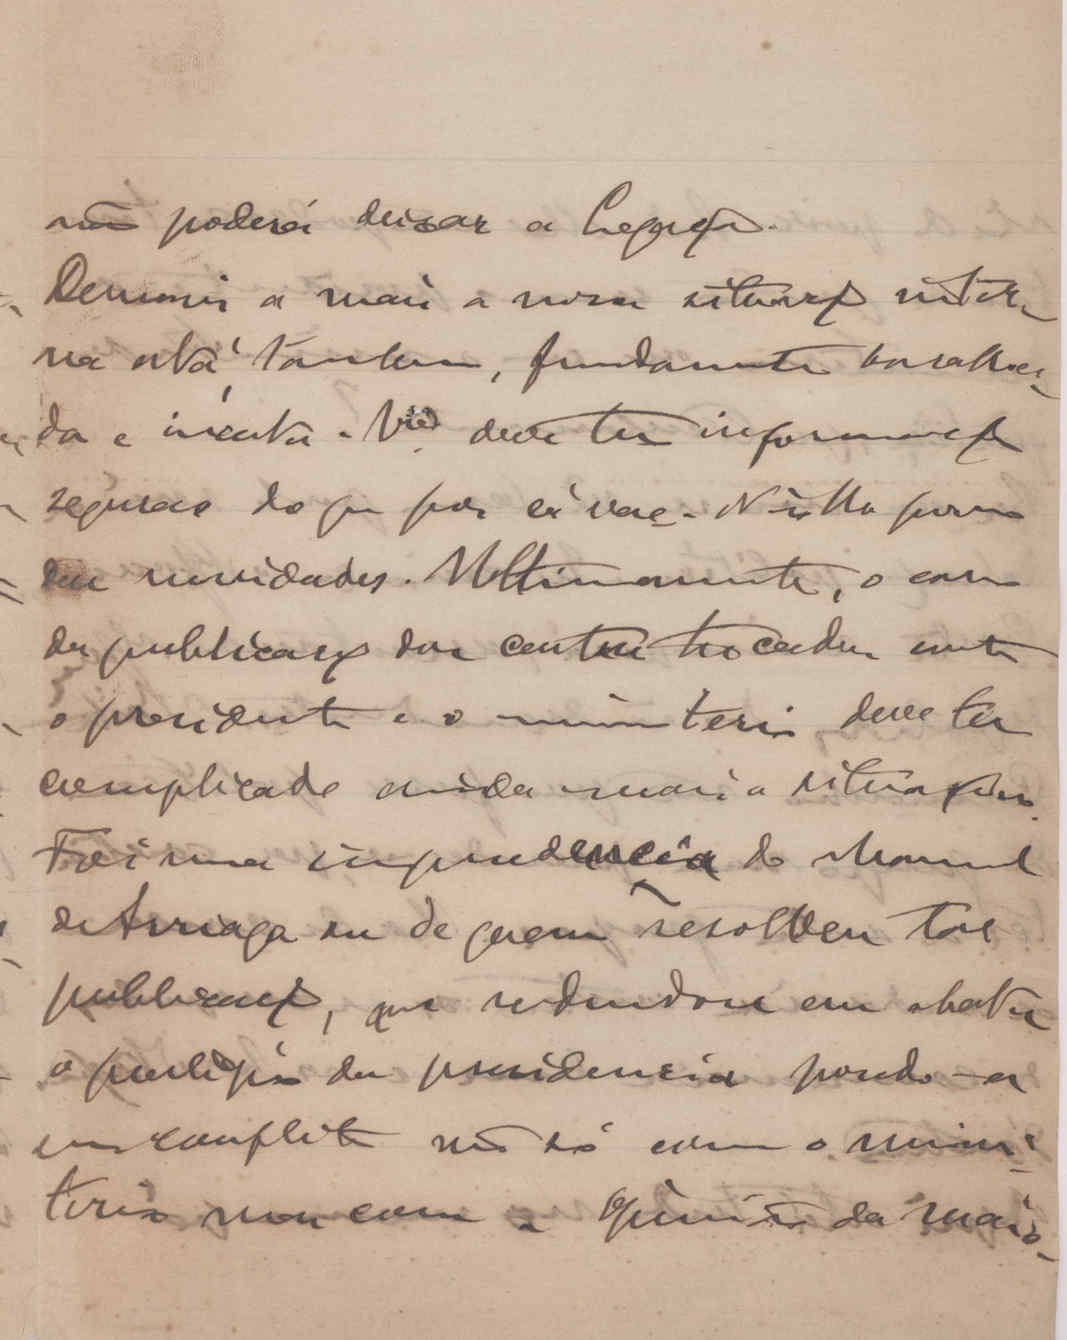 não poderá deixar a Legação.
De mais a mais a nossa situação inter-
na está, tambem, fundamente baralha-
da e incerta. Você deve ter informação
seguras do que por cá vae. Não lhe
dou novidades. Ultimamente, o caso
da publicação das cartas trocadas entre
o presidente e o ministerio, deve ter
complicado ainda mais a situação.
Foi uma imprudencia do Manuel
de Arriaga ou de quem resolveu tal
publicação, que redundou em abater
o prestigio da presidencia pondo-a
em conflito não só com o minis-
terio mas com a opinião da maio-